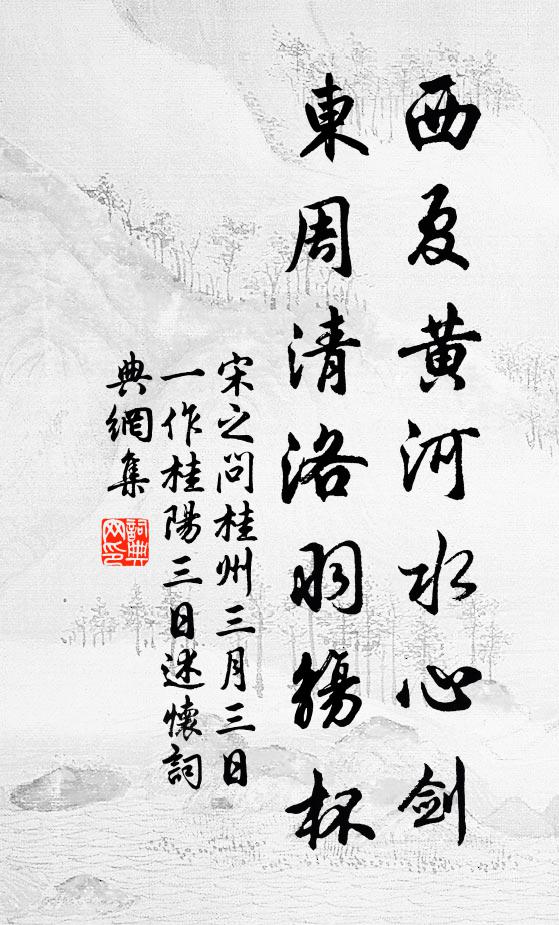 西夏黄河水心剑
東周清洛羽觴杯
宋之问桂州三月三日
一作桂陽三日述懷詞
典網集
詞典網印